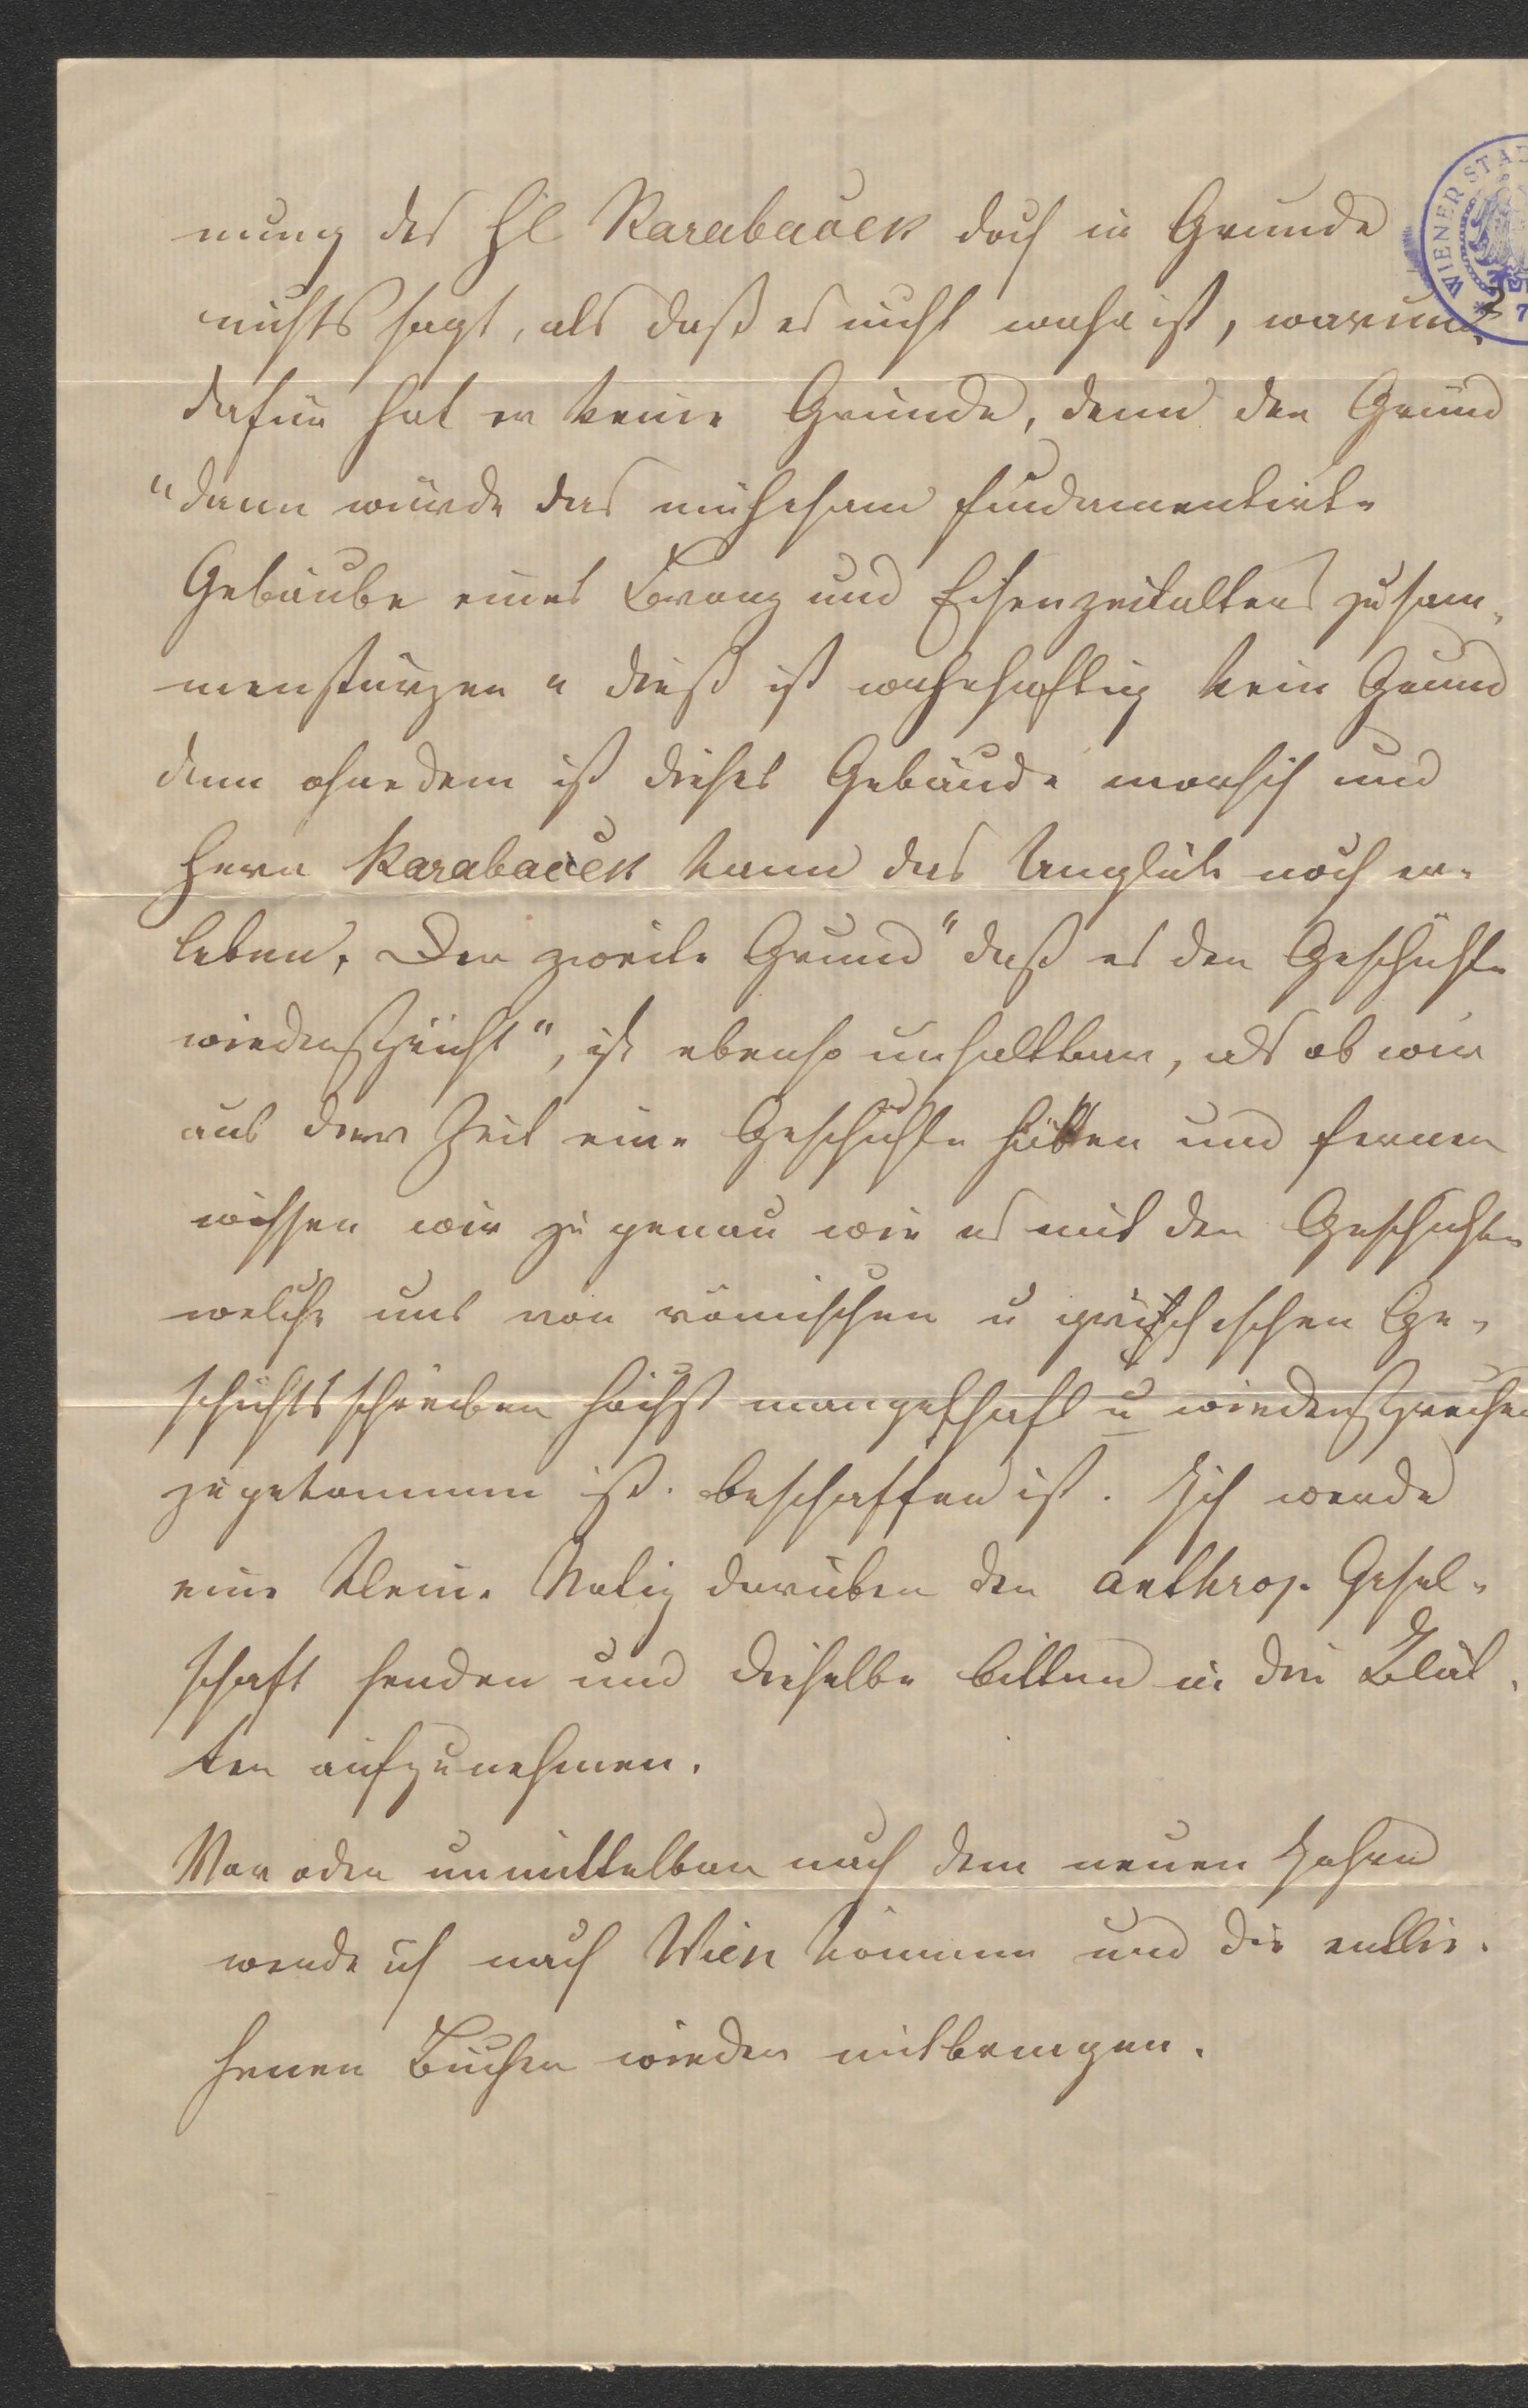 nung des H Karabaček doch in Grunde
nichts sagt, als daß es nicht wahr ist, warum?
dafür hat er keine Gründe, denn der Grund
"dann würde das mühesam fundamentirte
Gebäube eines Bronz und Eisenzeitalters zusam-
menstürzen" dieß ist wahrhaftig kein Grund
denn ohnedem ist dieses Gebäude morsch und
Herr Karabaček kann das Unglück noch er-
leben. Der zweite Grund "daß es der Geschichte
wiederspricht", ist ebenso unhaltbar, als ob wir
aus der Zeit eine Geschichte hätten und ferner
wissen wir zu genau wie es mit der Geschichte
welche uns von römischen u griechischen Ge-
schichtsschreiber höchst mangelhaft u wiedersprechend
zugekommen ist. beschaffen ist. Ich werde
eine kleine Notiz darüber der anthrop. Gesel-
schaft senden und dieselbe bitten in die Blät-
ter aufzunehmen.
Vor oder unmittelbar nach dem neuen Jahre
werde ich nach Wien kommen und die entlie-
henen Bücher wieder mitbringen.
WIENER STAD
7